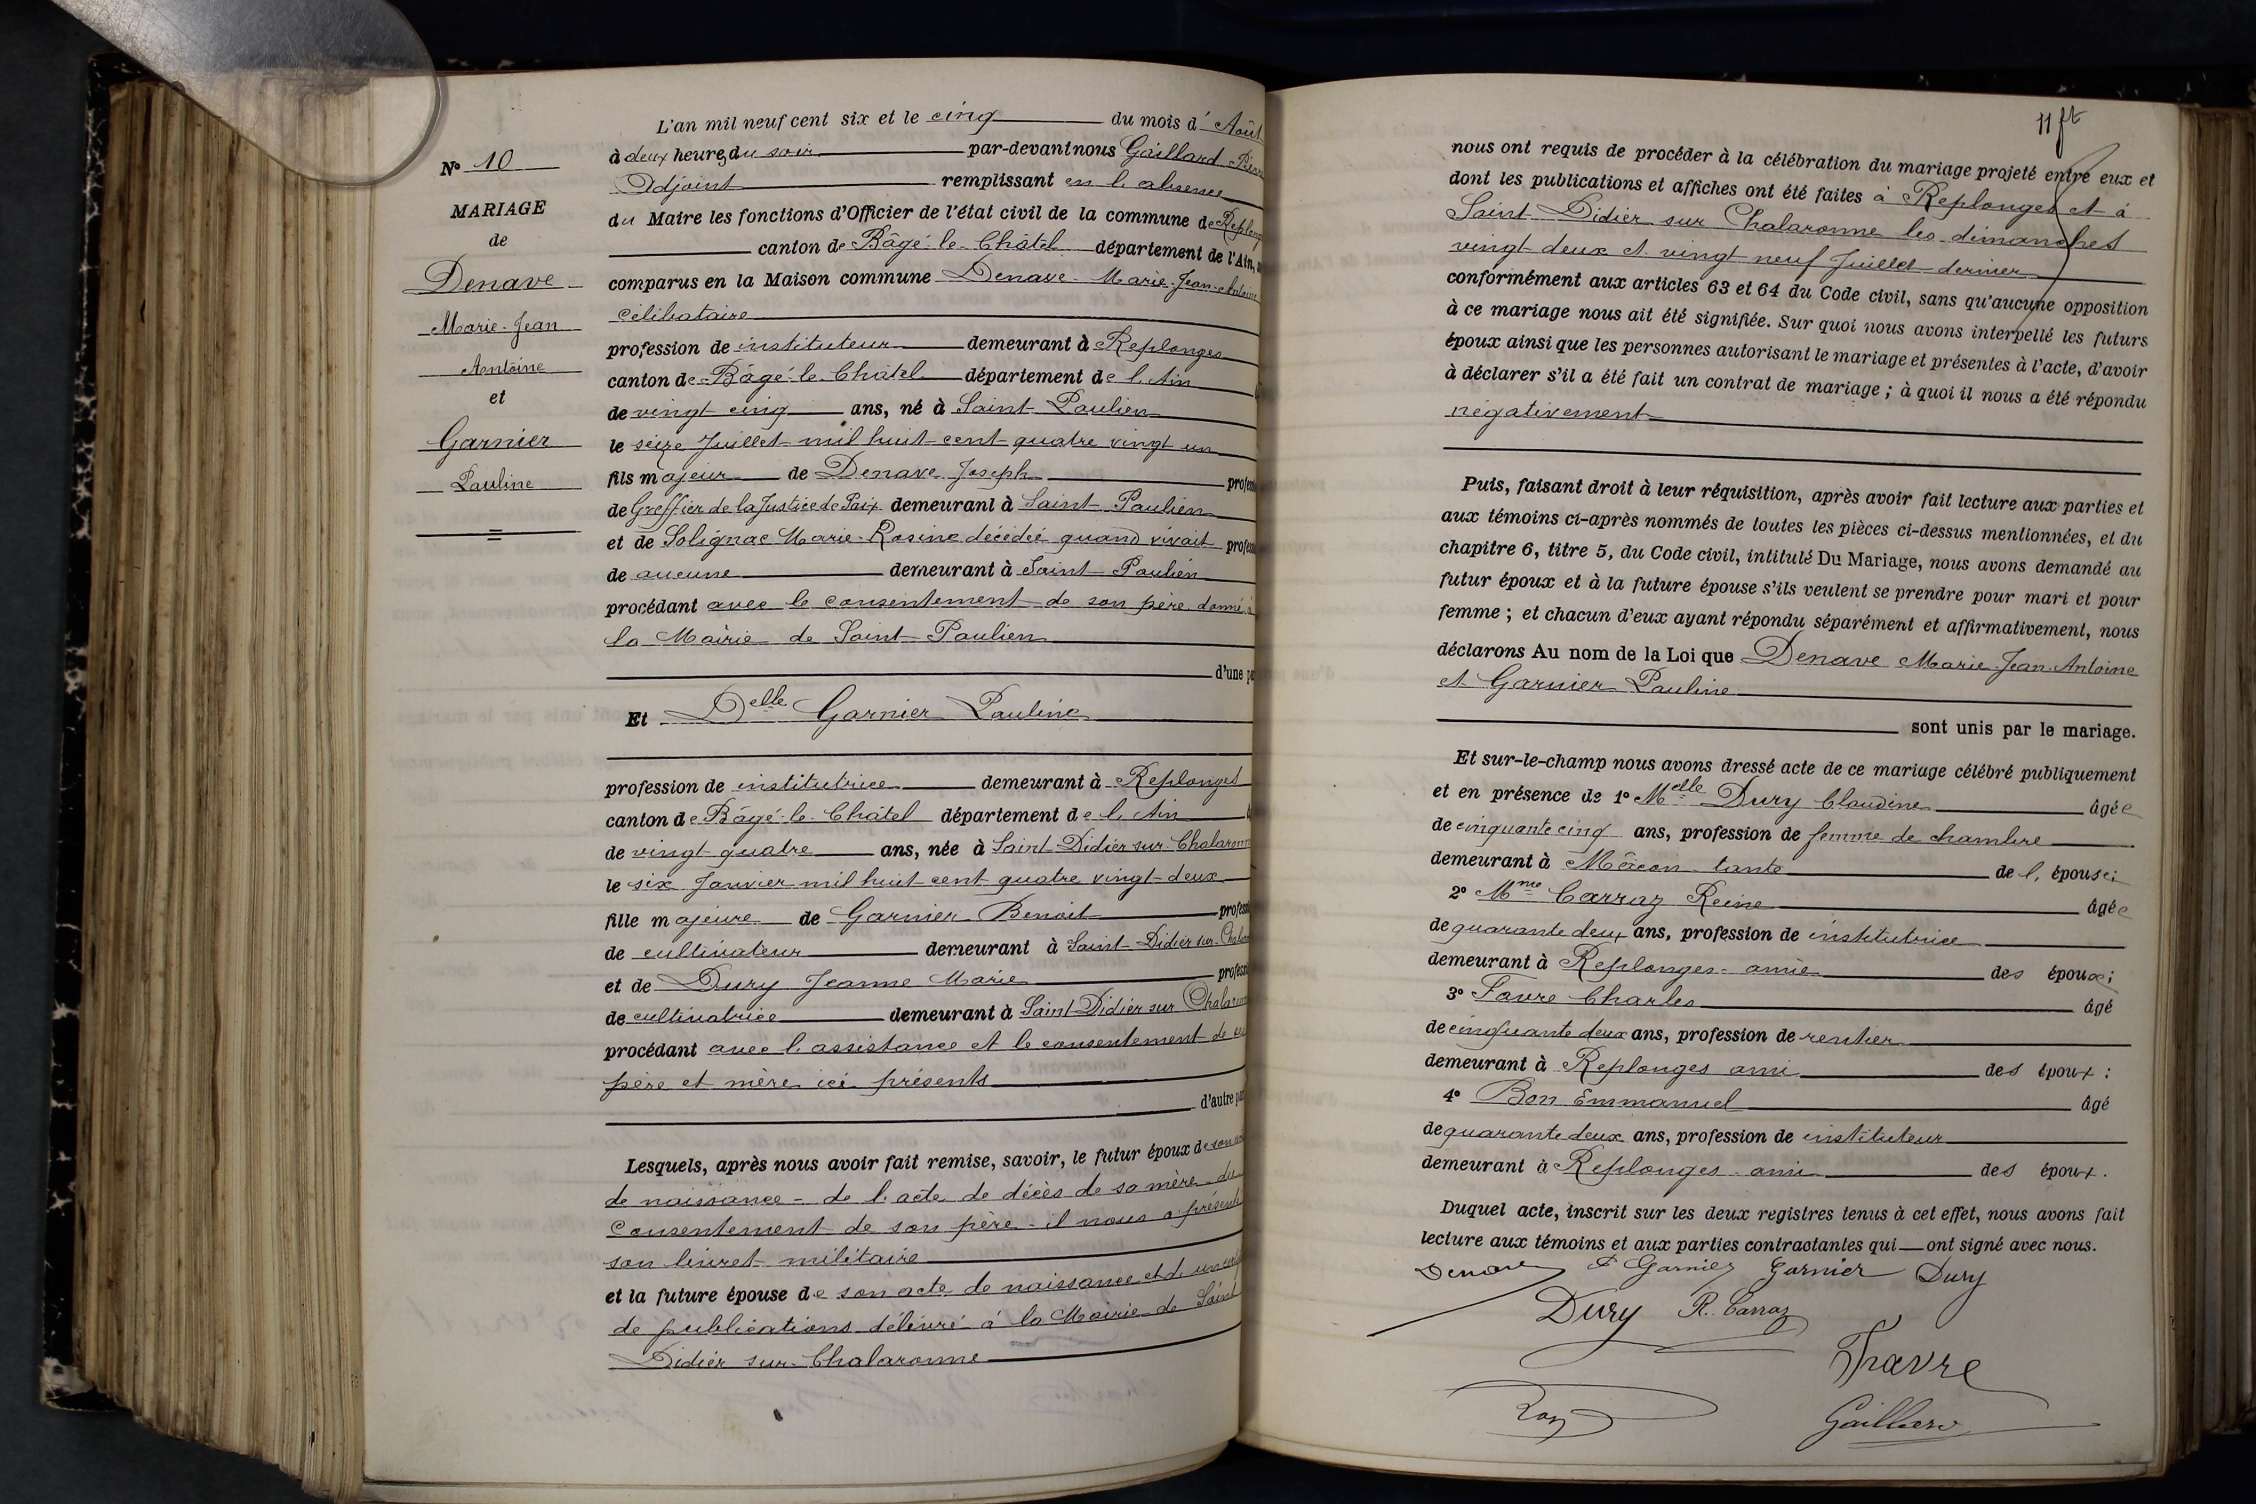 L'an mil neuf cent six et le cinq du mois d' Août
à deux heures du soir par-devant nous Gaillard Pierre
Adjoint remplissant en l'absence
du Maire les fonctions d'Officier de l'état civil de la commune de Replong
canton de Bâgé-le-Châtel département de l'Ain,
comparus en la Maison commune Denave Marie-Jean-Antoine
célibataire
profession de instituteur demeurant à Replonges
canton de Bâgé-le-Châtel département de l'Ain
de vingt cinq ans, né à Saint-Paulien
le seize Juillet mil huit cent quatre vingt un
fils majeur de Denave Joseph profes
de Greffier de la Justice de Paix demeurant à Saint-Paulien
et de Solignac Marie-Rosine décédée quand vivait profes
de aucune demeurant à Saint Paulien
procédant avec le consentement de son père donné à
la Mairie de Saint-Paulien
d'une pa
Et Delle Garnier Pauline
profession de institutrice demeurant à Replonges
canton de Bâgé-le-Châtel département de l'Ain
de vingt quatre ans, née à Saint-Didier sur Chalaronn
le six Janvier mil huit cent quatre vingt-deux
fille majeure de Garnier Benoit profess
de cultivateur demeurant à Saint-Didier sur-Chalar
et de Dury Jeanne Marie profess
de cultivatrice demeurant à Saint Didier sur Chalaron
procédant avec l'assistance et le consentement de
père et mère ici présents
d'autre par
Lesquels, après nous avoir fait remise, savoir, le futur époux de son
de naissance - de l'acte de décès de sa mère - du
consentement de son père - il nous a présent
son livret militaire
et la future épouse de son acte de naissance et d'un
de publications délivré à la Mairie de Saint
Didier sur-Chalaronne
N° 10
MARIAGE
de
Denave
Marie-Jean
Antoine
et
Garnier
Pauline
11 ft
nous ont requis de procéder à la célébration du mariage projeté entre eux et
dont les publications et affiches ont été faites à Replonges et à
Saint-Didier sur Chalaronne les dimanches
vingt-deux et vingt neuf Juillet dernier
conformément aux articles 63 et 64 du Code civil, sans qu'aucune opposition
à ce mariage nous ait été signifiée. Sur quoi nous avons interpellé les futurs
époux ainsi que les personnes autorisant le mariage et présentes à l'acte, d'avoir
à déclarer s'il a été fait un contrat de mariage ; à quoi il nous a été répondu
négativement
Puis, faisant droit à leur réquisition, après avoir fait lecture aux parties et
aux témoins ci-après nommés de toutes les pièces ci-dessus mentionnées, et du
chapitre 6, titre 5, du Code civil, intitulé Du Mariage, nous avons demandé au
futur époux et à la future épouse s'ils veulent se prendre pour mari et pour
femme ; et chacun d'eux ayant répondu séparément et affirmativement, nous
déclarons Au nom de la Loi que Denave Marie-Jean-Antoine
et Garnier Pauline
sont unis par le mariage.
Et sur-le-champ nous avons dressé acte de ce mariage célébré publiquement
et en présence de 1° Melle Dury Claudine âgée
de cinquante cinq ans, profession de femme de chambre
demeurant à Mâcon tante de l' épouse;
2° Mme Carraz Reine âgée
de quarante deux ans, profession de institutrice
demeurant à Replonges - amie des époux;
3° Favre Charles âgé
de cinquante deux ans, profession de rentier
demeurant à Replonges ami des époux :
4° Bon Emmanuel âgé
de quarante deux ans, profession de instituteur
demeurant à Replonges - ami des époux.
Duquel acte, inscrit sur les deux registres tenus à cet effet, nous avons fait
lecture aux témoins et aux parties contractantes qui ont signé avec nous.
Denave P Garnier Garnier Dury
Dury R. Carraz
Favre
Gaillard